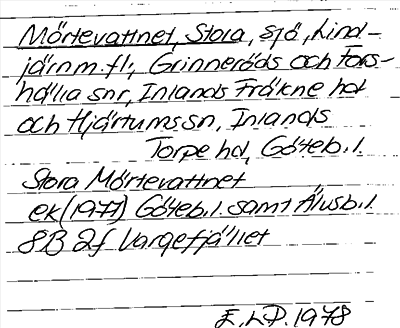 Mörtevattnet, Stora, sjö, Lind-
järn m.fl., Grinneröds och Fors-
hälla snr, Inlands Fräkne hd
och Hjärtums sn, Inlands
Torpe hd, Göteb. l.
Stora Mörtevattnet
ek (1977) Göteb. l. samt Älvsb. l.
8B 2f Vargefjället
E. LP. 1978